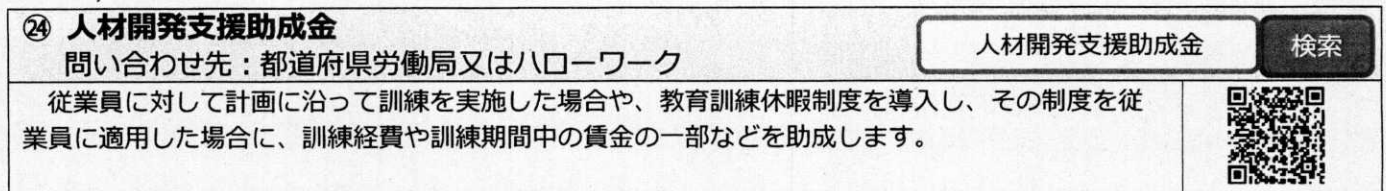 ㉔ 人材開発支援助成金
人材開発支援助成金 検索
問い合わせ先：都道府県労働局又はハローワーク
従業員に対して計画に沿って訓練を実施した場合や、教育訓練休暇制度を導入し、その制度を従
業員に適用した場合に、訓練経費や訓練期間中の賃金の一部などを助成します。